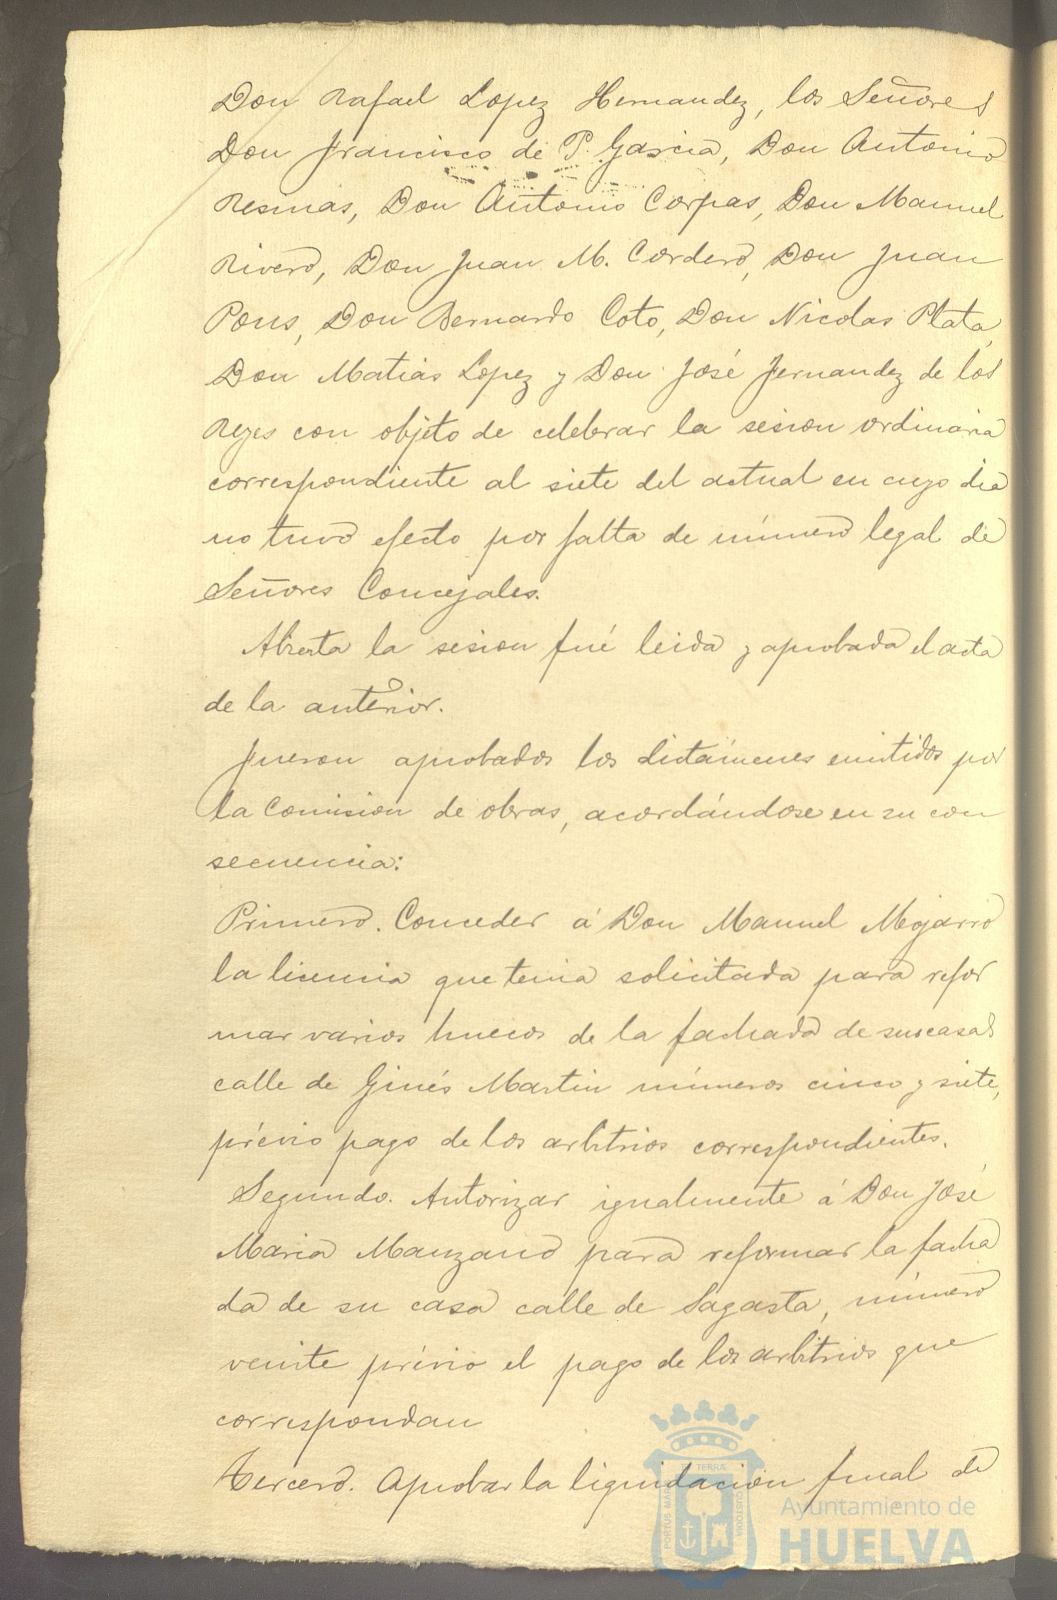 Don Rafael Lopez Hernandez, los Señores
Don Francisco de P. Garcia, Don Antonio
Resinas, Don Antonio Corpas, Don Manuel
Rivero, Don Juan M. Cordero, Don Juan
Pons, Don Bernardo Coto, Don Nicolas Plata,
Don Matias Lopez y Don José Fernandez de los
Reyes con objeto de celebrar la sesion ordinaria
correspondiente al siete del actual en cuyo dia
no tuvo efecto por falta de número legal de
Señores Concejales.
Abierta la sesion fué leida y aprobada el acta
de la anterior.
Fueron aprobados los dictámenes emitidos por
la Comision de obras, acordándose en su con
secuencia:
Primero. Conceder á Don Manuel Mojarro
la licencia que tenia solicitada para refor
mar varios huecos de la fachada de sus casas
calle de Ginés Martin números cinco y siete,
prévio pago de los arbitrios correspondientes.
Segundo. Autorizar igualmente á Don José
Maria Manzano para reformar la facha
da de su casa calle de Sagasta, número
veinte prévio el pago de los arbitrios que
correspondan
Tercero. Aprobar la liquidacion final de
TERRÆ
PORTUS MARIS
CUSTODIA
Ayuntamiento de
HUELVA